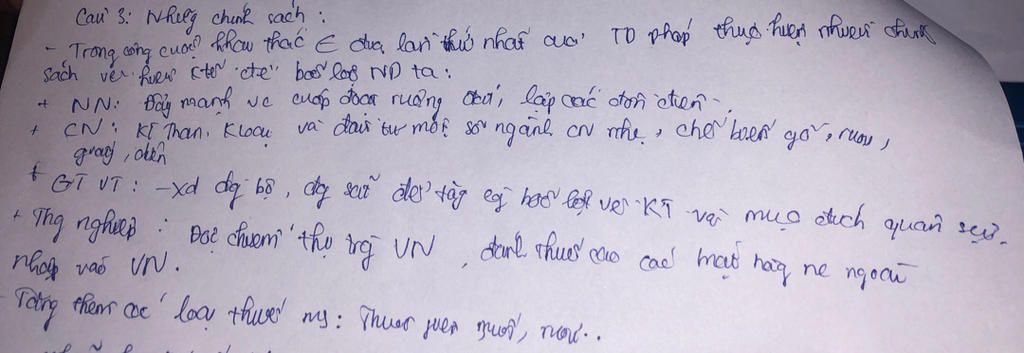 Câu 3: Những chính sách:
- Trong công cuộc khai thác € địa lần thứ nhất của TD pháp thực hiện nhiều chính
sách về kiểm ktế để bóc lột ND ta:
+ NN: Đẩy mạnh vc cướp đoạt ruộng đất, lập các đồn điền.
+ CN: KT Than, Kloại và đầu tư một số ngành CN nhẹ, chế biến gỗ, rượu,
giấy, điện
+ GT VT: -xd đg bộ, đg sắt để tăg cg bóc lột về KT và mục đích quân sự.
+ Thg nghiệp: Độc chiếm thị trg VN, đánh thuế cao các mặt hàg nc ngoài
nhập vào VN.
- Tăng thêm các loại thuế ms: Thuế muối, rượu..